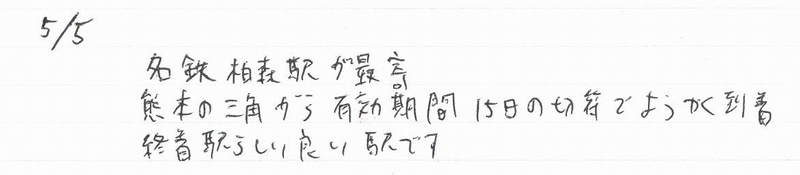 5/5
名鉄 柏森駅が最寄
熊本の三角から有効期間 15日の切符でようかく到着
終着駅らしい良い駅です